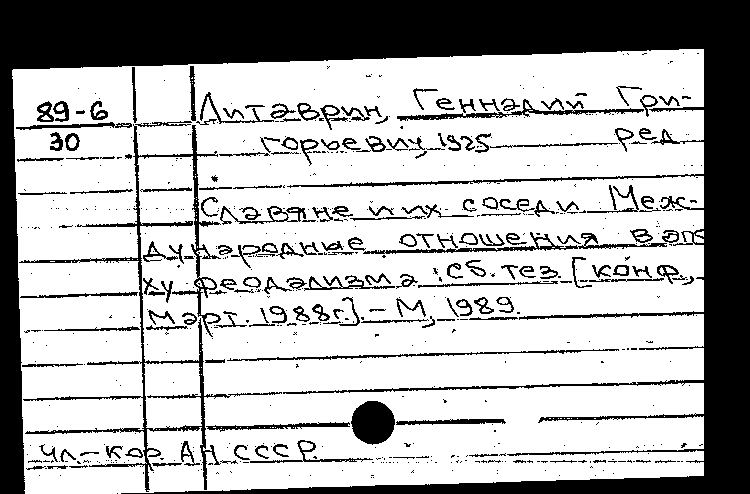 89-6 Литаврин, Геннадий Гри-
30 горьевич, 1925 ред.
Славяне и их соседи. Меж-
дународные отношения в эпо
ху феодализма: Сб. тез. [конф.,
март. 1988г.]. - М., 1989.
Чл.-кор. АН СССР.